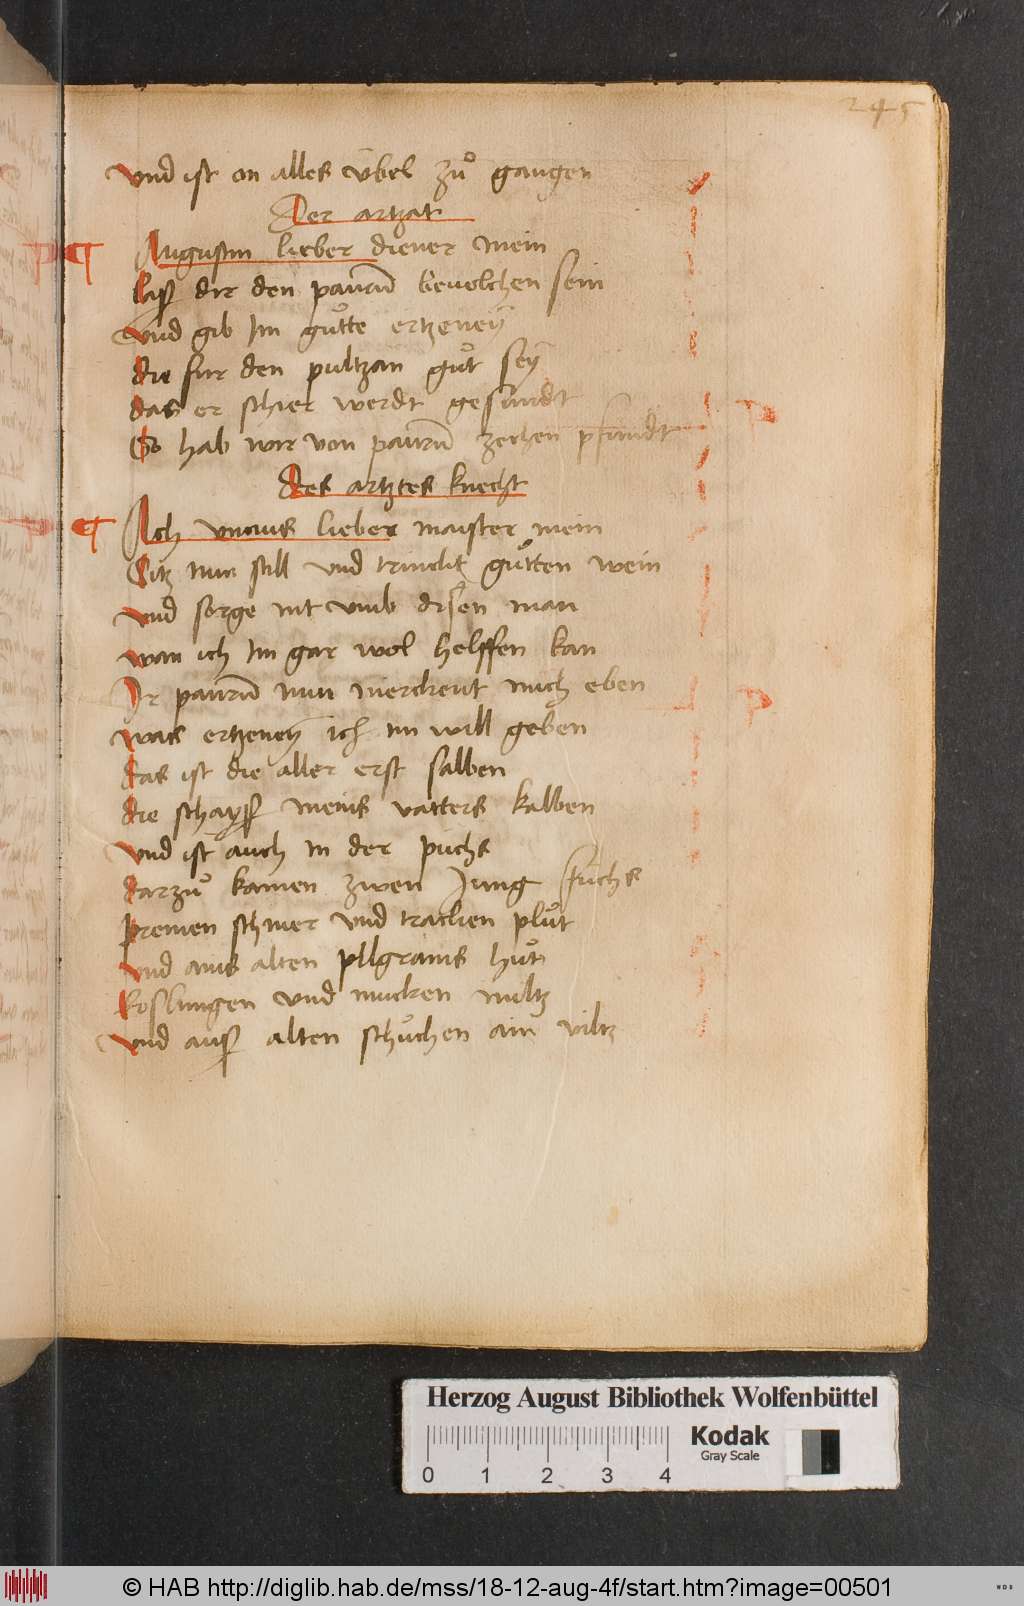 245
vnd ist on alles vbel zů gangen
Der artzat
Augustin lieber diener mein
laß dir den paurn̄ beuolchen sein
vnd gib Im gůtte ertzeneÿ
die fur den pultzan gůt seÿ
das er schier werdt gesundt
So hab wir von paurn̄ zechen pfundt
des artztes knecht
Ach lieber maister mein
Sitz nur still vnd trinckt gůtten wein
vnd sorge nit vmb disen man
wan ich Im gar wol helffen kan
Ir paurn̄ nun merckent mich eben
was ertzeneÿ ich im will geben
das ist die aller erst salben
die schayß meins vatters kalben
vnd ist auch in der puchs
darzů kamen zwen Jung fuchs
premen schmer vnd tracken plůt
vnd ains alten pilgrams hůt
Roslungen vnd mucken miltz
vnd auß alten schůchen ain viltz
Herzog August Bibliothek Wolfenbüttel
Kodak
Gray Scale
0 1 2 3 4
© HAB http://diglib.hab.de/mss/18-12-aug-4f/start.htm?image=00501